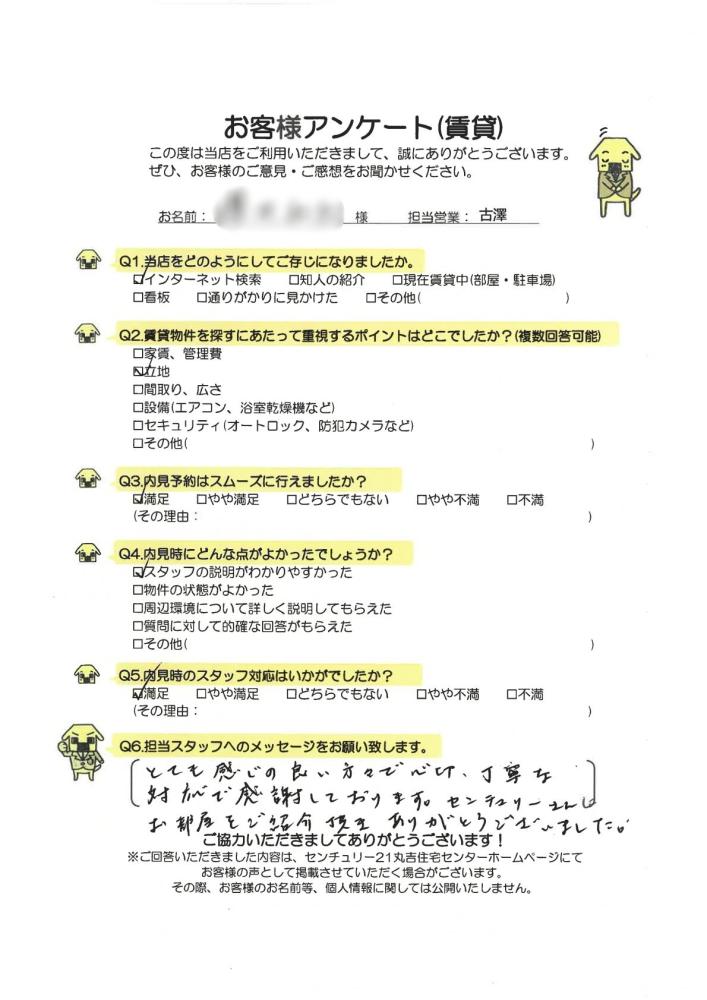 お客様アンケート(賃貸)
この度は当店をご利用いただきまして、誠にありがとうございます。
ぜひ、お客様のご意見・ご感想をお聞かせください。
お名前： 様 担当営業： 古澤
Q1.当店をどのようにしてご存じになりましたか。
☑インターネット検索 □知人の紹介 □現在賃貸中(部屋・駐車場)
□看板 □通りがかりに見かけた □その他( )
Q2.賃貸物件を探すにあたって重視するポイントはどこでしたか？(複数回答可能)
□家賃、管理費
☑立地
□間取り、広さ
□設備(エアコン、浴室乾燥機など)
□セキュリティ(オートロック、防犯カメラなど)
□その他( )
Q3.内見予約はスムーズに行えましたか？
☑満足 □やや満足 □どちらでもない □やや不満 □不満
(その理由： )
Q4.内見時にどんな点がよかったでしょうか？
☑スタッフの説明がわかりやすかった
□物件の状態がよかった
□周辺環境について詳しく説明してもらえた
□質問に対して的確な回答がもらえた
□その他( )
Q5.内見時のスタッフ対応はいかがでしたか？
☑満足 □やや満足 □どちらでもない □やや不満 □不満
(その理由： )
Q6.担当スタッフへのメッセージをお願い致します。
とても感じの良い方々で、丁寧な
対応で感謝しております。センチュリーさんに
お部屋をご紹介頂きありがとうございました。
ご協力いただきましてありがとうございます！
※ご回答いただきました内容は、センチュリー21丸吉住宅センターホームページにて
お客様の声として掲載させていただく場合がございます。
その際、お客様のお名前等、個人情報に関しては公開いたしません。